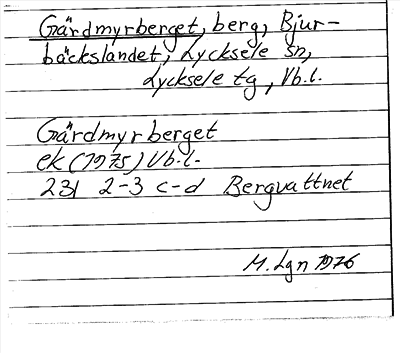 Gärdmyrberget, berg, Bjur-
bäckslandet, Lycksele sn,
Lycksele tg, Vb.l.
Gärdmyrberget
ek (1975) Vb.l.
23I 2-3 c-d Bergvattnet
M. Lgn 1976